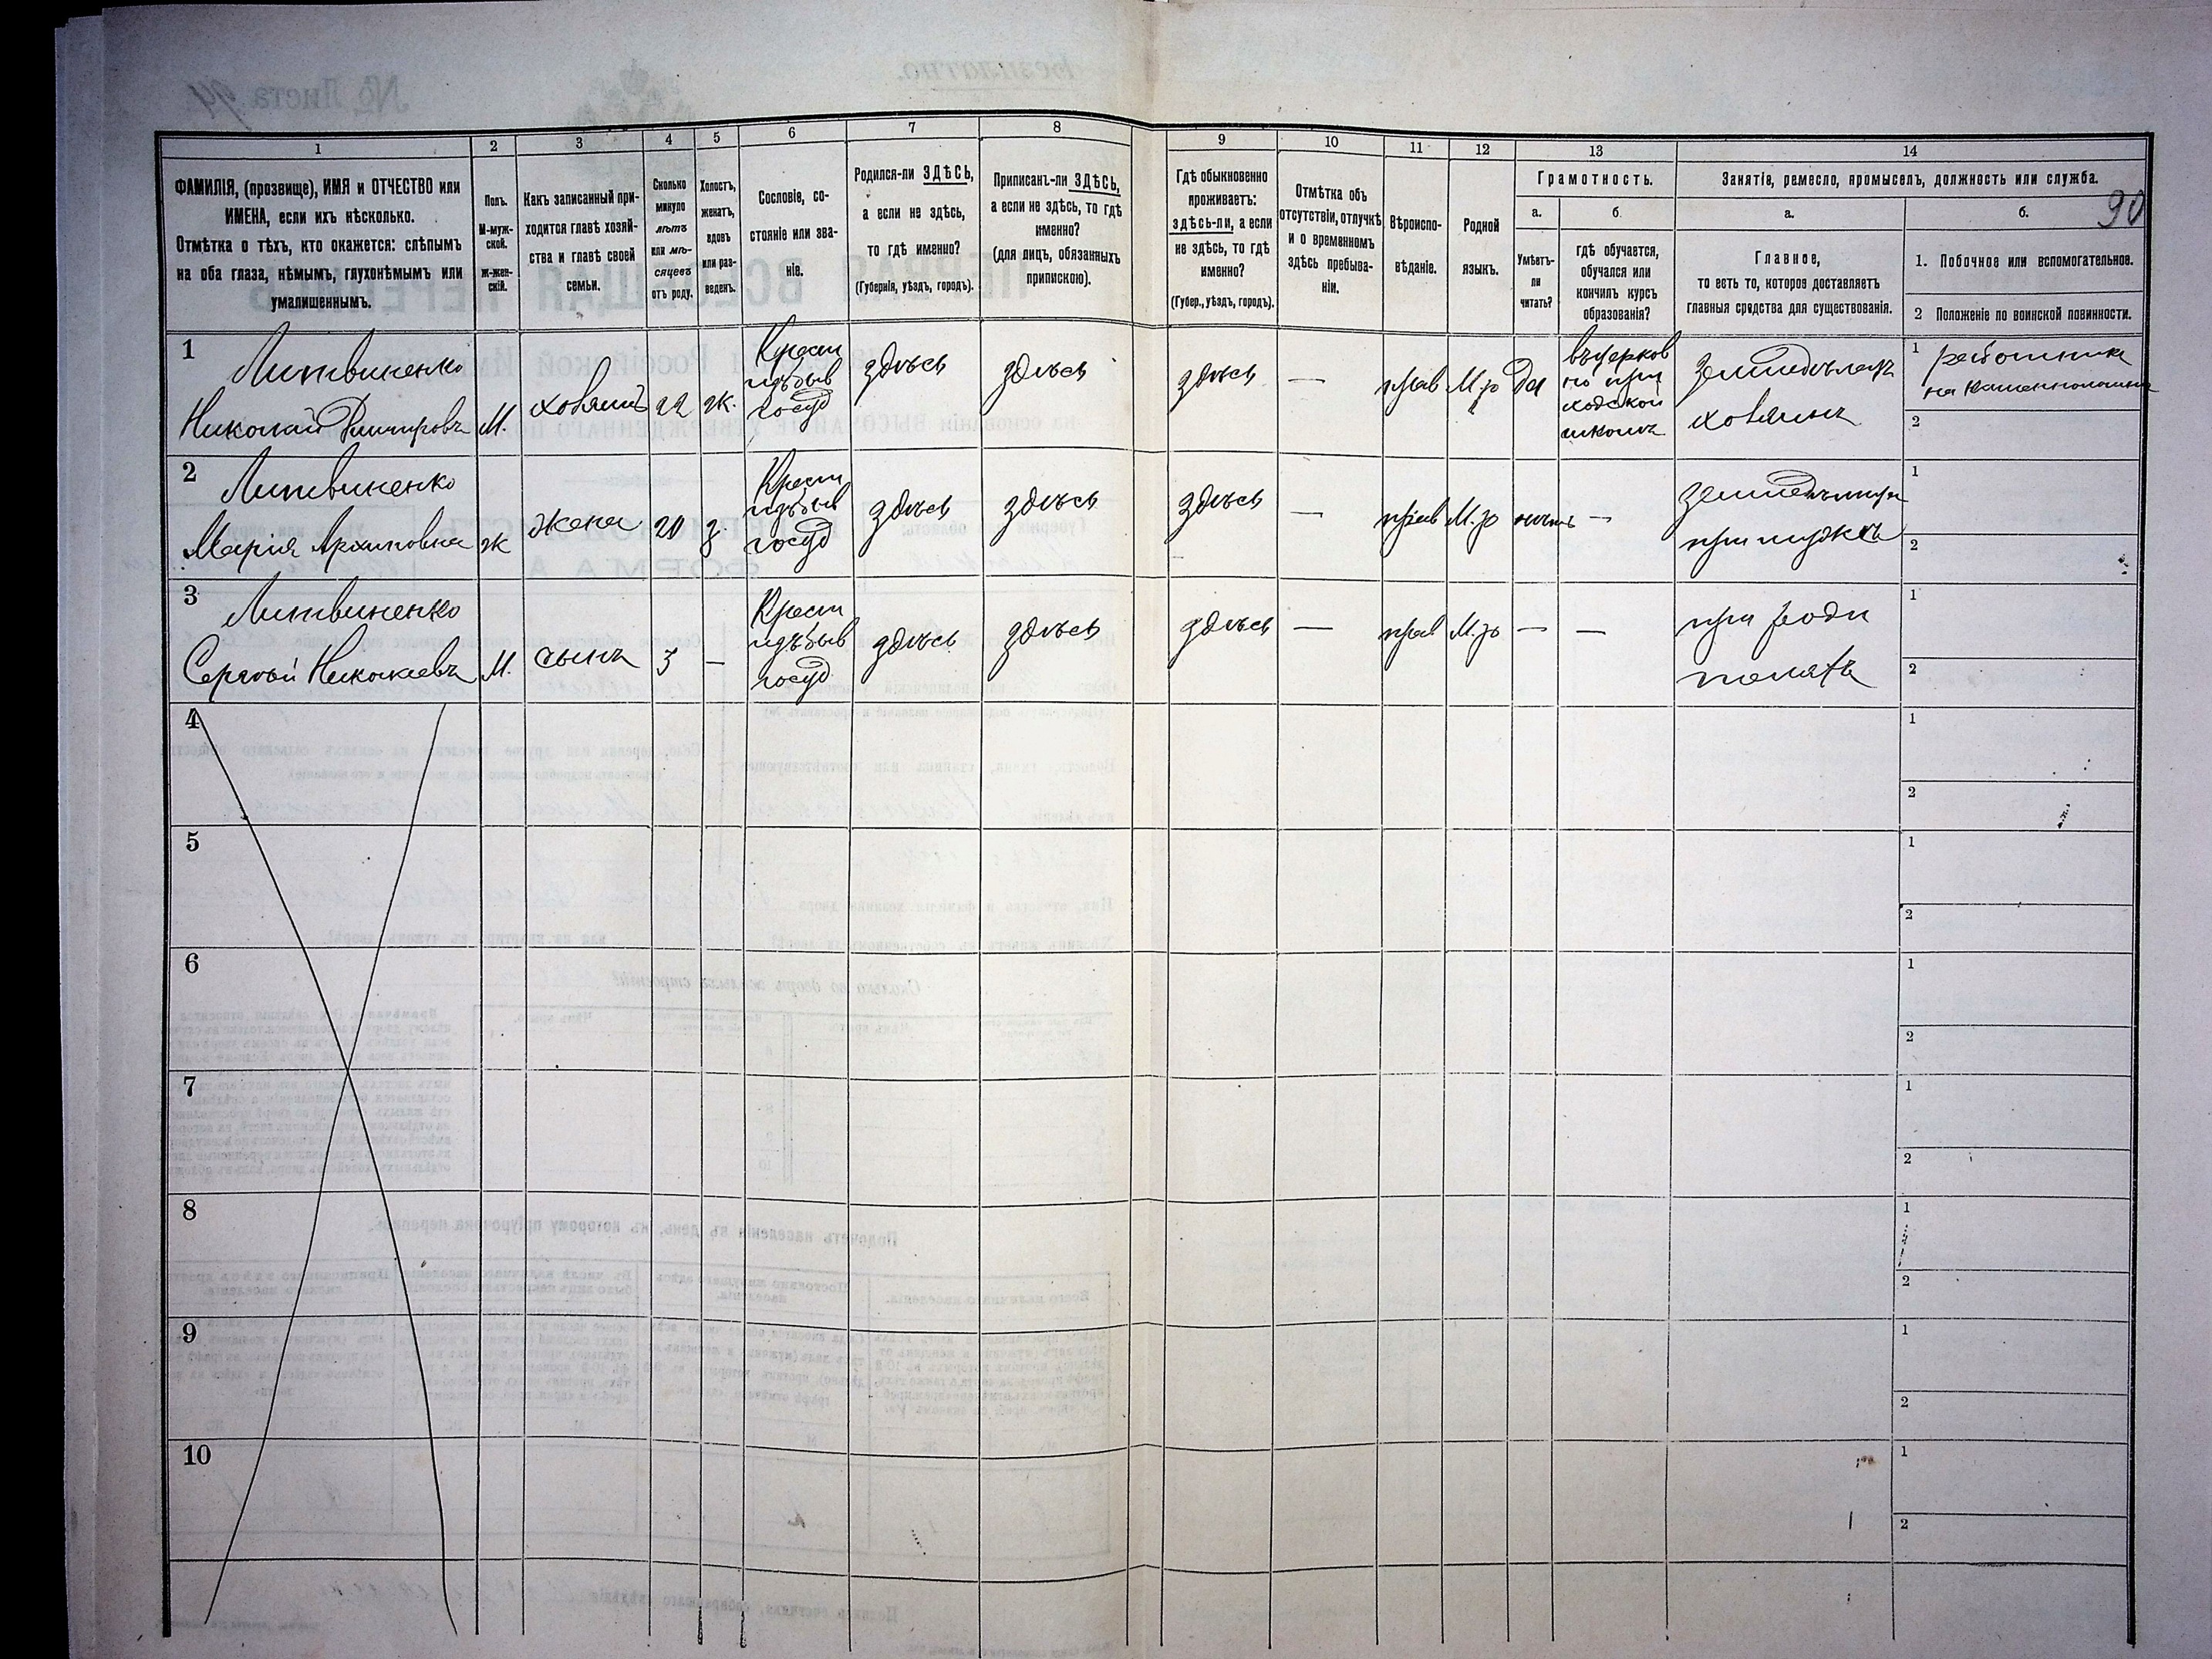 90
1
2
3
4
5
6
7
8
9
10
11
12
13
14
ФАМИЛІЯ, (прозвище), ИМЯ и ОТЧЕСТВО или
ИМЕНА, если ихъ нѣсколько.
Отмѣтка о тѣхъ, кто окажется: слѣпымъ
на оба глаза, нѣмымъ, глухонѣмымъ или
умалишеннымъ.
Полъ.
М-муж-
ской.
Ж-жен-
скій.
Какъ записанный при-
ходится главѣ хозяй-
ства и главѣ своей
семьи.
Сколько
минуло
лѣтъ
или мѣ-
сяцевъ
отъ роду.
Холостъ,
женатъ,
вдовъ
или раз-
веденъ.
Сословіе, со-
стояніе или зва-
ніе.
Родился-ли ЗДѢСЬ,
а если не здѣсь,
то гдѣ именно?
(Губернія, уѣздъ, городъ).
Приписанъ-ли ЗДѢСЬ,
а если не здѣсь, то гдѣ
именно?
(для лицъ, обязанныхъ
припискою).
Гдѣ обыкновенно
проживаетъ:
здѣсь-ли, а если
не здѣсь, то гдѣ
именно?
(Губер., уѣздъ, городъ).
Отмѣтка объ
отсутствіи, отлучкѣ
и о временномъ
здѣсь пребыва-
ніи.
Вѣроиспо-
вѣданіе.
Родной
языкъ.
Грамотность.
а.
Умѣетъ-
ли
читать?
б.
гдѣ обучается,
обучался или
кончилъ курсъ
образованія?
Занятіе, ремесло, промыселъ, должность или служба.
а.
Главное,
то есть то, которое доставляетъ
главныя средства для существованія.
б.
1. Побочное или вспомогательное.
2 Положеніе по воинской повинности.
1
Литвиненко
Николай Дмитровъ
М.
хозяинъ
22
ж.
Крест
изъ быв
госуд
здѣсь
здѣсь
здѣсь
—
прав
М.р
да
въ церков
но при
ходской
школѣ
земледѣлецъ
хозяинъ
1 работник
на
2
2
Литвиненко
Марія Архиповна
ж
жена
20
з.
Крест
изъ быв
госуд
здѣсь
здѣсь
здѣсь
—
прав
М.р
нѣтъ
—
при мужѣ
1
2
3
Литвиненко
Сергѣй Николаевъ
М.
сынъ
3
—
Крест
изъ быв
госуд
здѣсь
здѣсь
здѣсь
—
прав
М.р
—
—
при роди
теляхъ
1
2
4
1
2
5
1
2
6
1
2
7
1
2
8
1
2
9
1
2
10
1
2